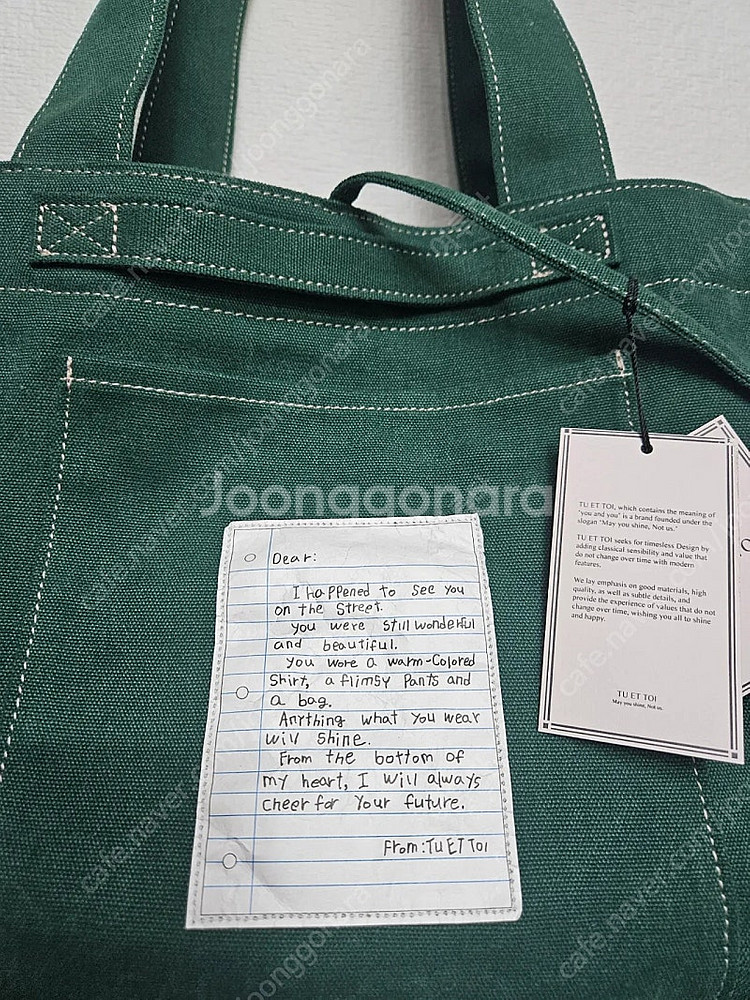 Joonggonara
Dear:
I happened to see you
on the street.
you were still wonderful
and beautiful.
you wore a warm-colored
shirt, a flimsy pants and
a bag.
Anything what you wear
will shine.
From the bottom of
my heart, I will always
cheer for your future.
From:TU ET TOI
TU ET TOI, which contains the meaning of
"you and you" is a brand founded under the
slogan "May you shine, Not us."
TU ET TOI seeks for timesless Design by
adding classical sensibility and value that
do not change over time with modern
features.
We lay emphasis on good materials, high
quality, as well as subtle details, and
provide the experience of values that do not
change over time, wishing you all to shine
and happy.
TU ET TOI
May you shine, Not us.
cafe.naver.com/joonggonara